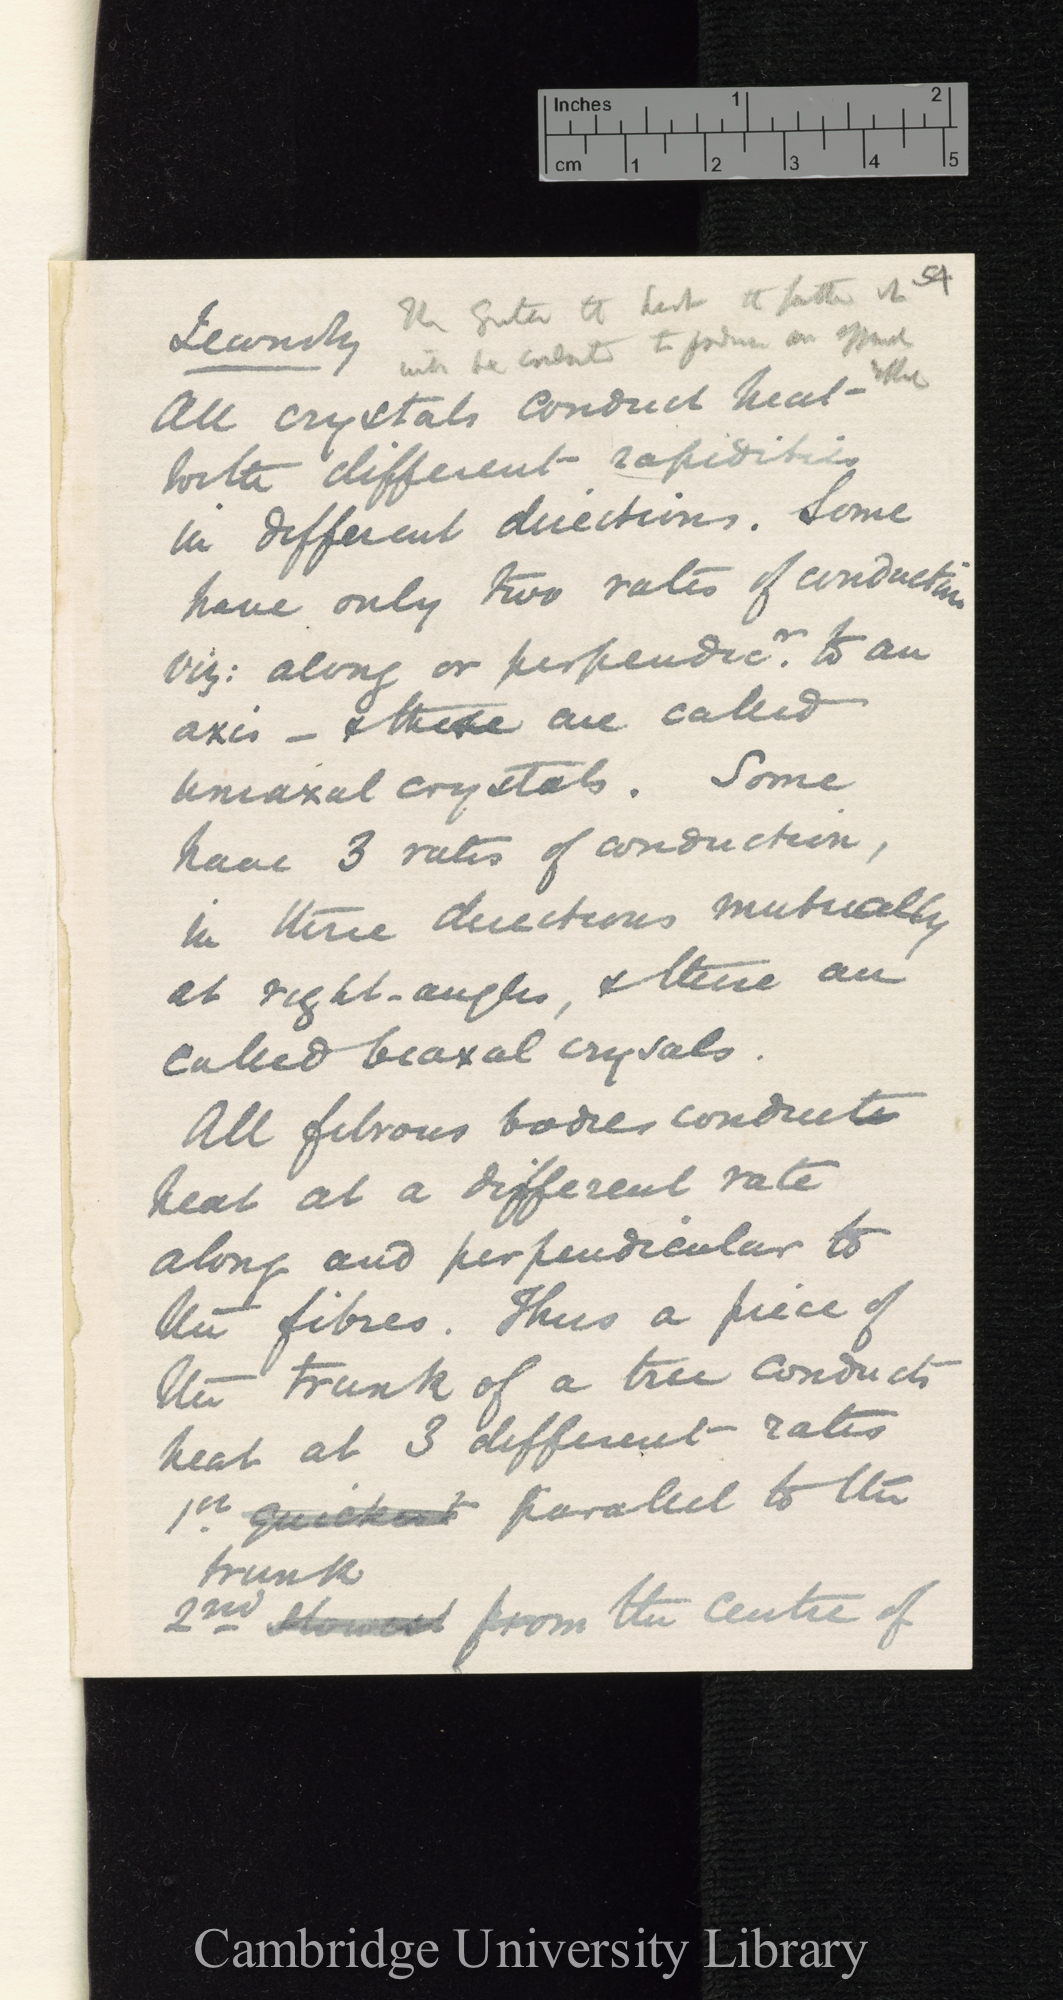 Inches 1 2
cm 1 2 3 4 5
54
Secondly
The greater the heat the farther it
will be conducted to produce an equal
effect
All crystals conduct heat
with different rapidities
in different directions. Some
have only two rates of conduction
viz: along or perpendicr. to an
axis – & these are called
uniaxal crystals. Some
have 3 rates of conduction,
in three directions mutually
at right-angles, & these are
called biaxal crysals.
All fibrous bodies conduct
heat at a different rate
along and perpendicular to
the fibres. Thus a piece of
the trunk of a tree conducts
heat at 3 different rates
1st. quickest parallel to the
trunk
2nd slowest from the centre of
Cambridge University Library